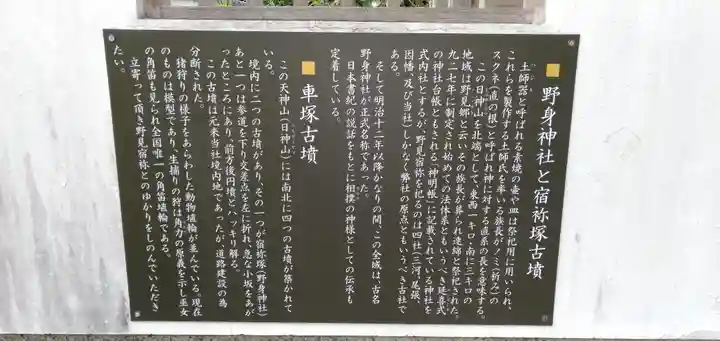 ■野身神社と宿祢塚古墳
土師器と呼ばれる素焼の壷や皿は祭祀用に用いられ、
これらを製作する土師氏を率いる族長が「ノミ(祈み)の
スクネ(直の根)と呼ばれ神に対する直系の長を意味する。
この日神山を北端として、東西一キロ・南に三キロの
地域は野見郷と云いその族長が葬られ連綿と祭祀された。
九二七年に制定され始めての法体系ともいうべき延喜式
の神社台帳ともされる「神明帳」に記載されている神社を
式内社とするが、野見宿祢を祀るのは四社(三河、尾張、
因幡、及び当社)しかなく、弊社の原点ともいうべき古社で
ある。
そして明治十二年以降かなりの間、この全域は、古名
野身神社が正式名称であった。
日本書紀の説話をもとに相撲の神様としての伝承も
定着している。
■車塚古墳
この天神山(日神山)には南北に四つの古墳が築かれて
いる。
境内に二つの古墳があり、その一つが宿祢塚(野身神社)
あと一つは参道を下り交差点を左に折れ、急な小坂をあが
ったところにあり、前方後円墳とハッキリ解る。
この古墳は元来当社境内地であったが、道路建設の為
分断された。
猪狩りの様子をあらわした動物埴輪が並んでいる。現在
のものは模型であり、生捕りの狩は角力の原義を示し巫女
の角笛も見られ全国唯一の角笛埴輪である。
立寄って頂き野見宿祢とのゆかりをしのんでいただき
たい。